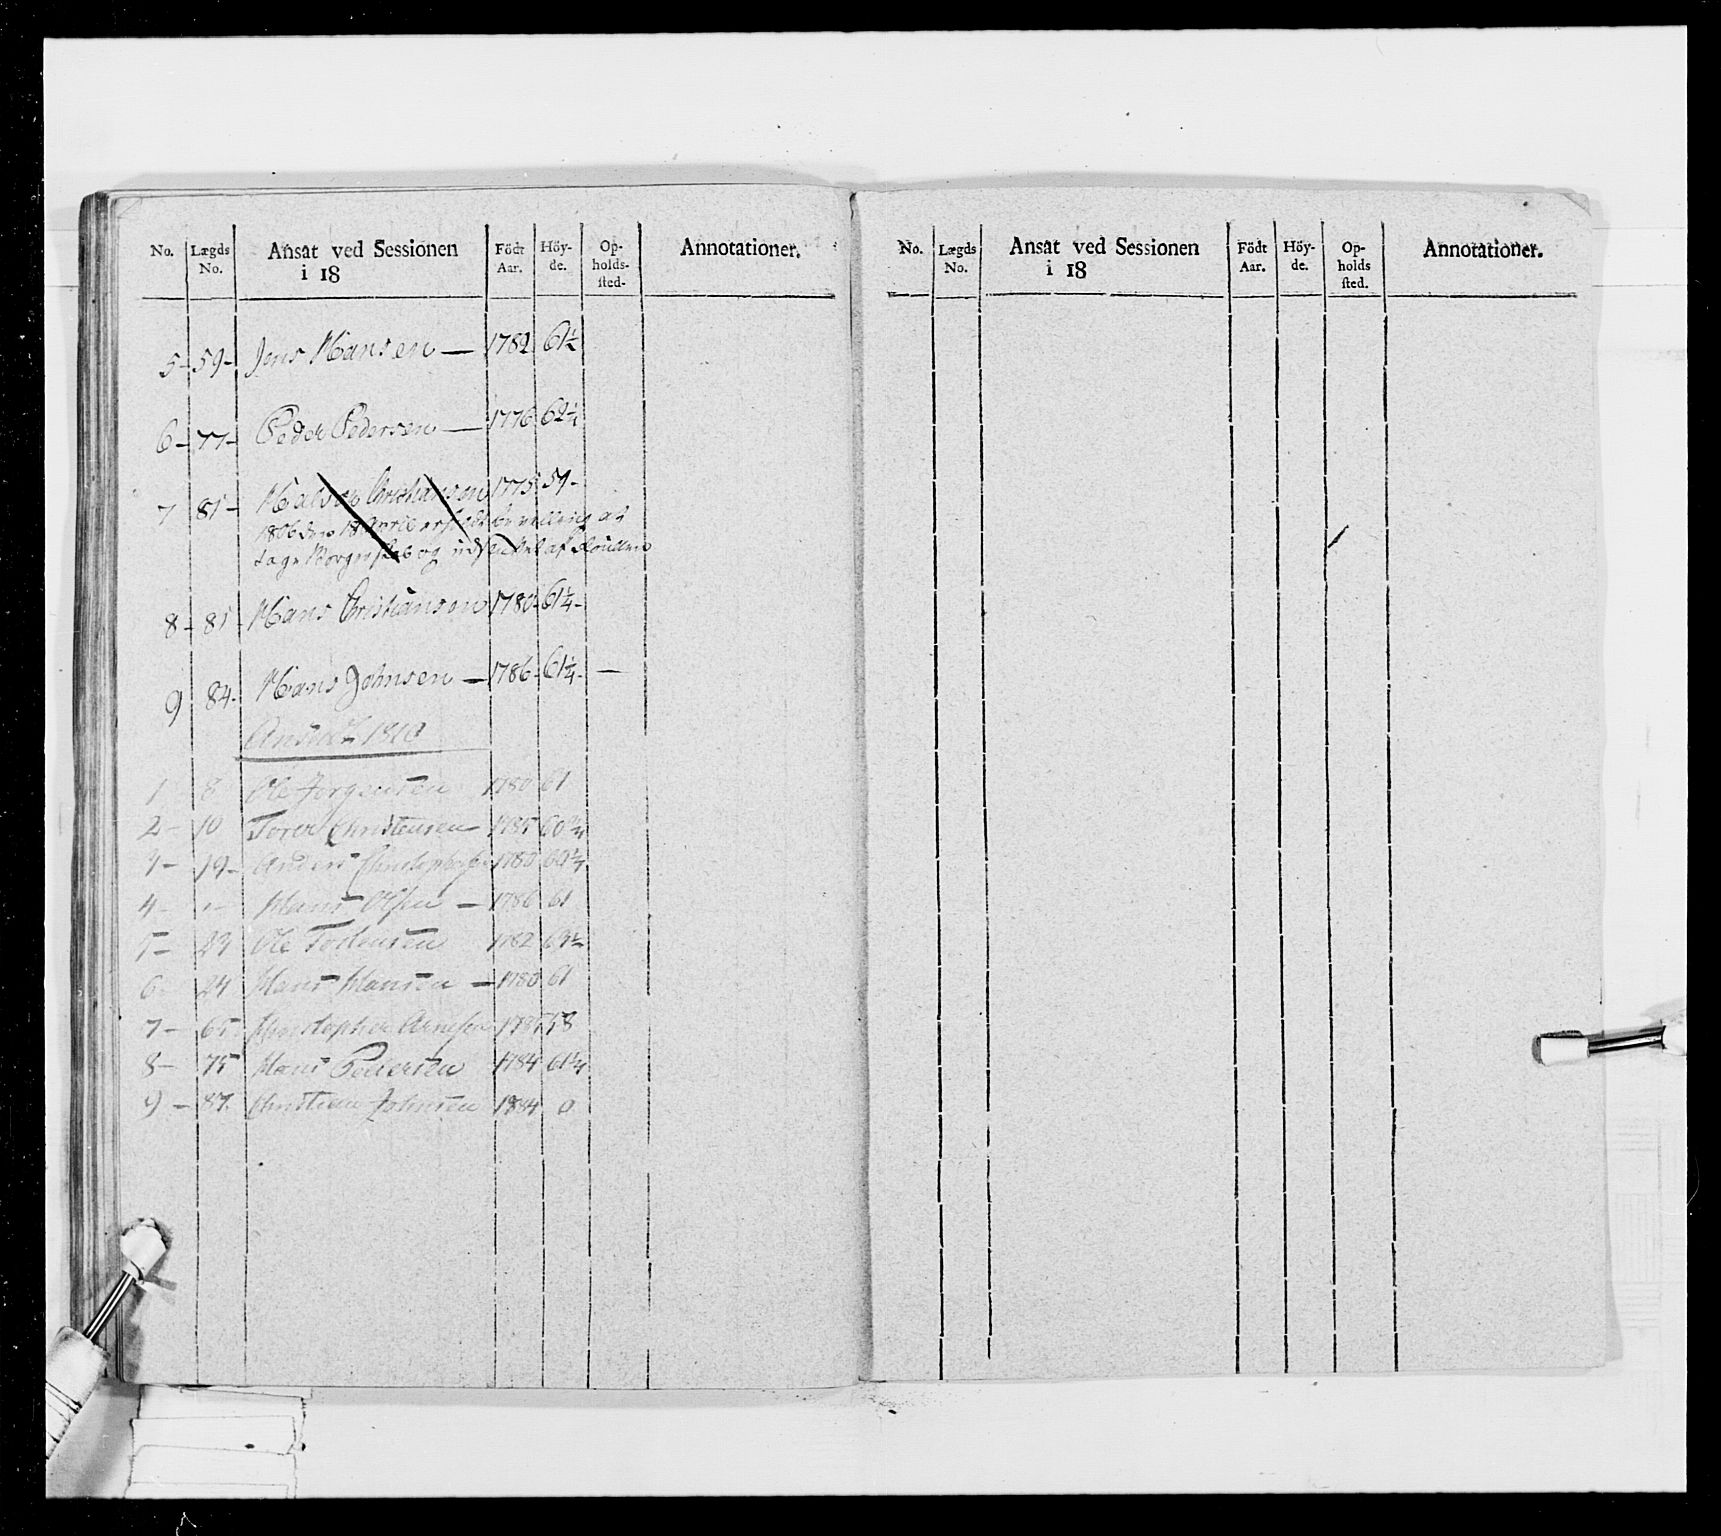 No. Lægds No. Ansat ved Sessionen i 18 Födt Aar. Höy-de. Op-holds-sted- Annotationer.
5- 59- Jens Hansen — 1782 61½
6- 77- Peder Pedersen — 1776 62¼
7 81- Halvor Christiansen 1775 59-
1806 den 18 April erholdt bevilling at
tage Borgerskab og udslettet af Roullen
8- 81- Hans Christiansen 1780- 61¼-
9 84- Hans Johnsen — 1786- 61¼- —
Ansadt 1810
1 8 Ole Jörgensen 1780 61
2- 10 Torer Christensen 1785 60¼
3- 19- Anders 1780 60¼
4- "- Hans Olsen — 1786 61
5- 23 Ole Tostensen 1782 63½
6- 24 Hans Hansen — 1780 61
7- 65 Christopher Arnesen 1785 58
8- 75 Hans Pedersen 1784 61¼
9- 87. Christian Johnsen 1884 0
No. Lægds No. Ansat ved Sessionen i 18 Födt Aar. Höy-de. Op-holds sted. Annotationer.